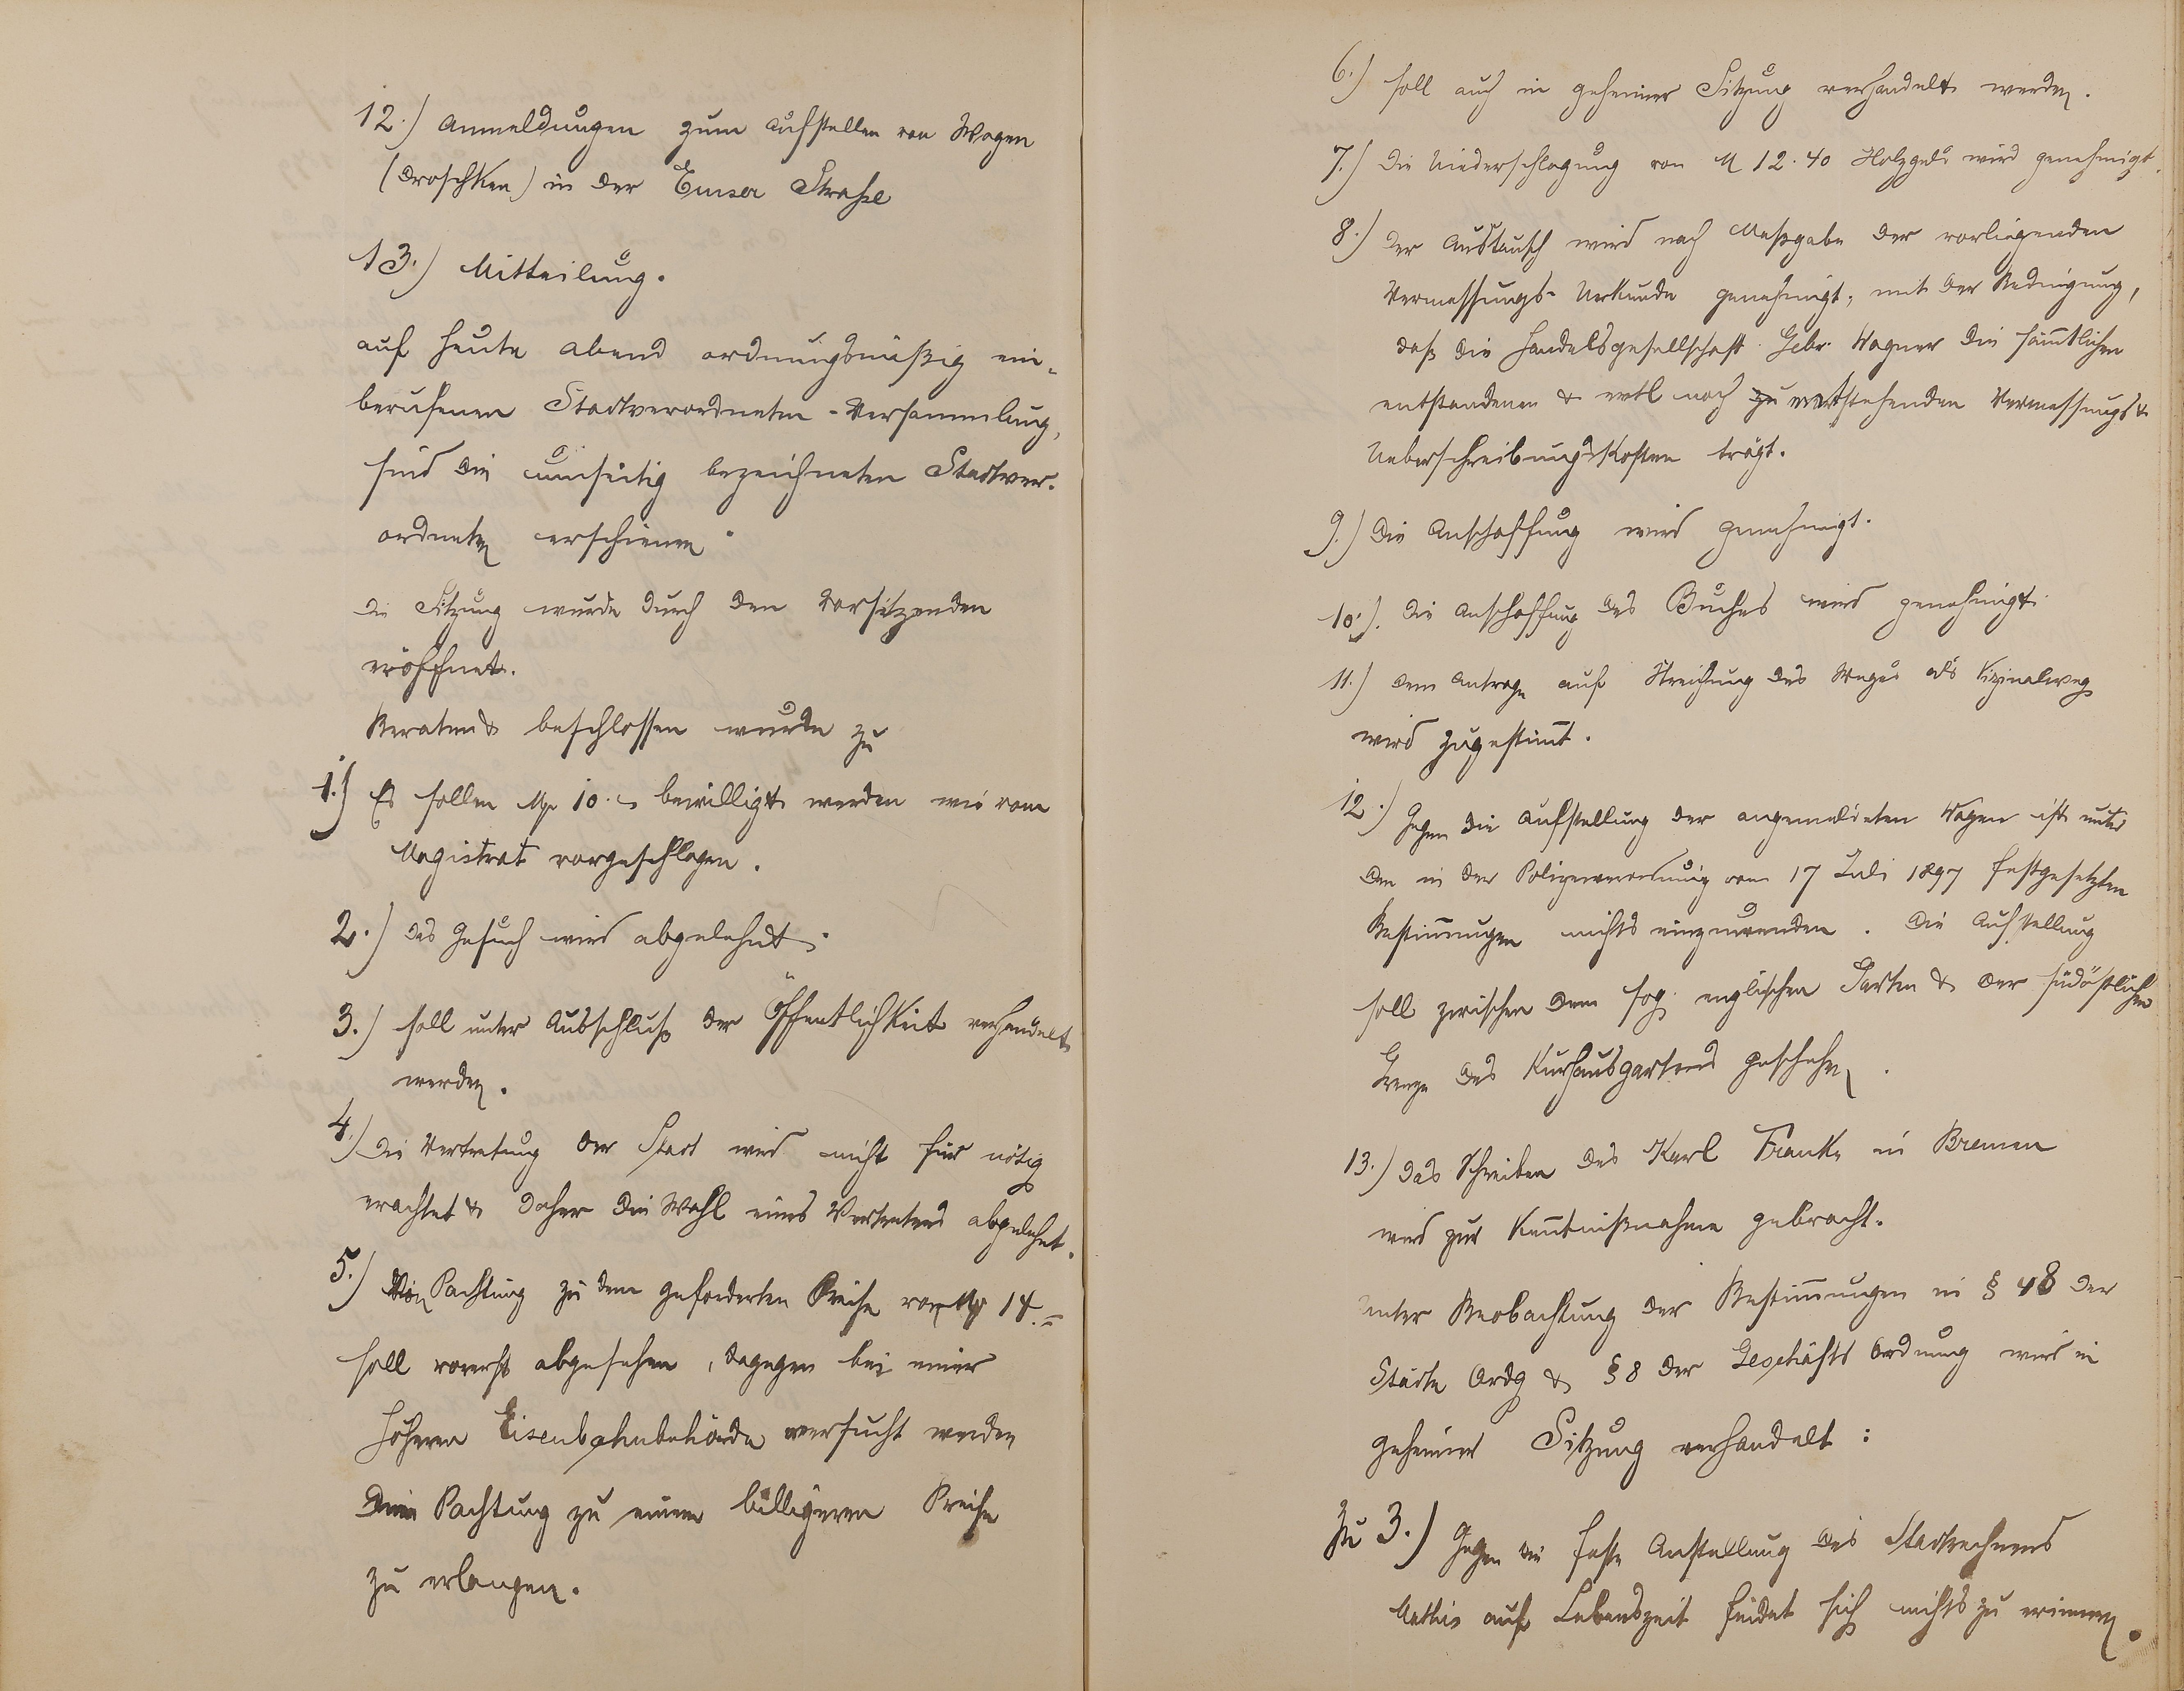 12.) Anmeldungen zum Aufstellen von Wagen
(Droschken) in der Emser Straße
13.) Mitteilung.
auf heute abend ordnungsmäßig ein-
berufenen Stadtverordneten-Versammlung,
sind die umseitig bezeichneten Stadtver-
ordneten erschienen.
Die Sitzung wurde durch den Vorsitzenden
eröffnet.
Beraten & beschlossen wurde zu
1.) Es sollen M 10.- bewilligt werden wie vom
Magistrat vorgeschlagen.
2.) Das Gesuch wird abgelehnt.
3.) soll unter Ausschluß der Öffentlichkeit verhandelt
werden.
4.) Die Vertretung der Stadt wird nicht für nötig
erachtet & daher die Wahl eines Vertreters abgelehnt.
5.) Von Pachtung zu dem geforderten Preise von M 14.-
soll vorerst abgesehen, dagegen bei einer
höheren Eisenbahnbehörde versucht werden
die Pachtung zu einem billigeren Preise
zu erlangen.
6.) soll auch in geheimer Sitzung verhandelt werden.
7.) Die Niederschlagung von M 12.40 Holzgeld wird genehmigt.
8.) Der Austausch wird nach Maßgabe der vorliegenden
Vermessungs-Urkunde genehmigt, mit der Bedingung,
daß die Handelsgesellschaft Gebr. Wagner die sämtlichen
entstandenen & evtl noch entstehenden Vermessungs &
Ueberschreibungskosten trägt.
9.) Die Anschaffung wird genehmigt.
10.). Die Anschaffung des Buches wird genehmigt.
11.) Dem Antrage auf Streichung des Weges als Vizinalweg
wird zugestimt.
12.) Gegen die Aufstellung der angemeldeten Wagen ist unter
den in der Polizeiverordnung vom 17 Juli 1897 festgesetzten
Bestimungen nichts einzuwenden. Die Aufstellung
soll zwischen dem sog. englischen Garten & der südöstlichen
Grenze des Kurhausgartens geschehen.
13.) Das Schreiben des Karl Franke in Bremen
wird zur Kentnißnahme gebracht.
Unter Beobachtung der Bestimungen in § 48 der
Städte Ordg & § 8 der Geschäfts Ordnung wird in
geheimer Sitzung verhandelt:
Zu 3.) Gegen die feste Anstellung des Stadtrechners
Mathis auf Lebenszeit findet sich nichts zu erinnern.